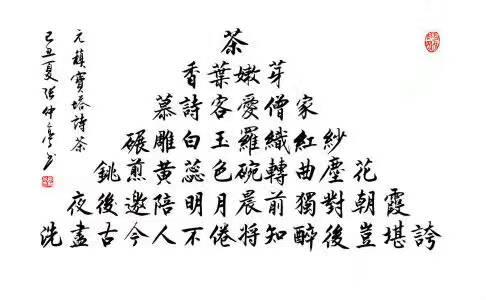 茶
香葉嫩芽
慕詩客愛僧家
碾雕白玉羅織紅紗
銚煎黃蕊色碗轉曲塵花
夜後邀陪明月晨前獨對朝霞
洗盡古今人不倦將知醉後豈堪誇
元稹寶塔詩茶
己丑夏张仲亭书